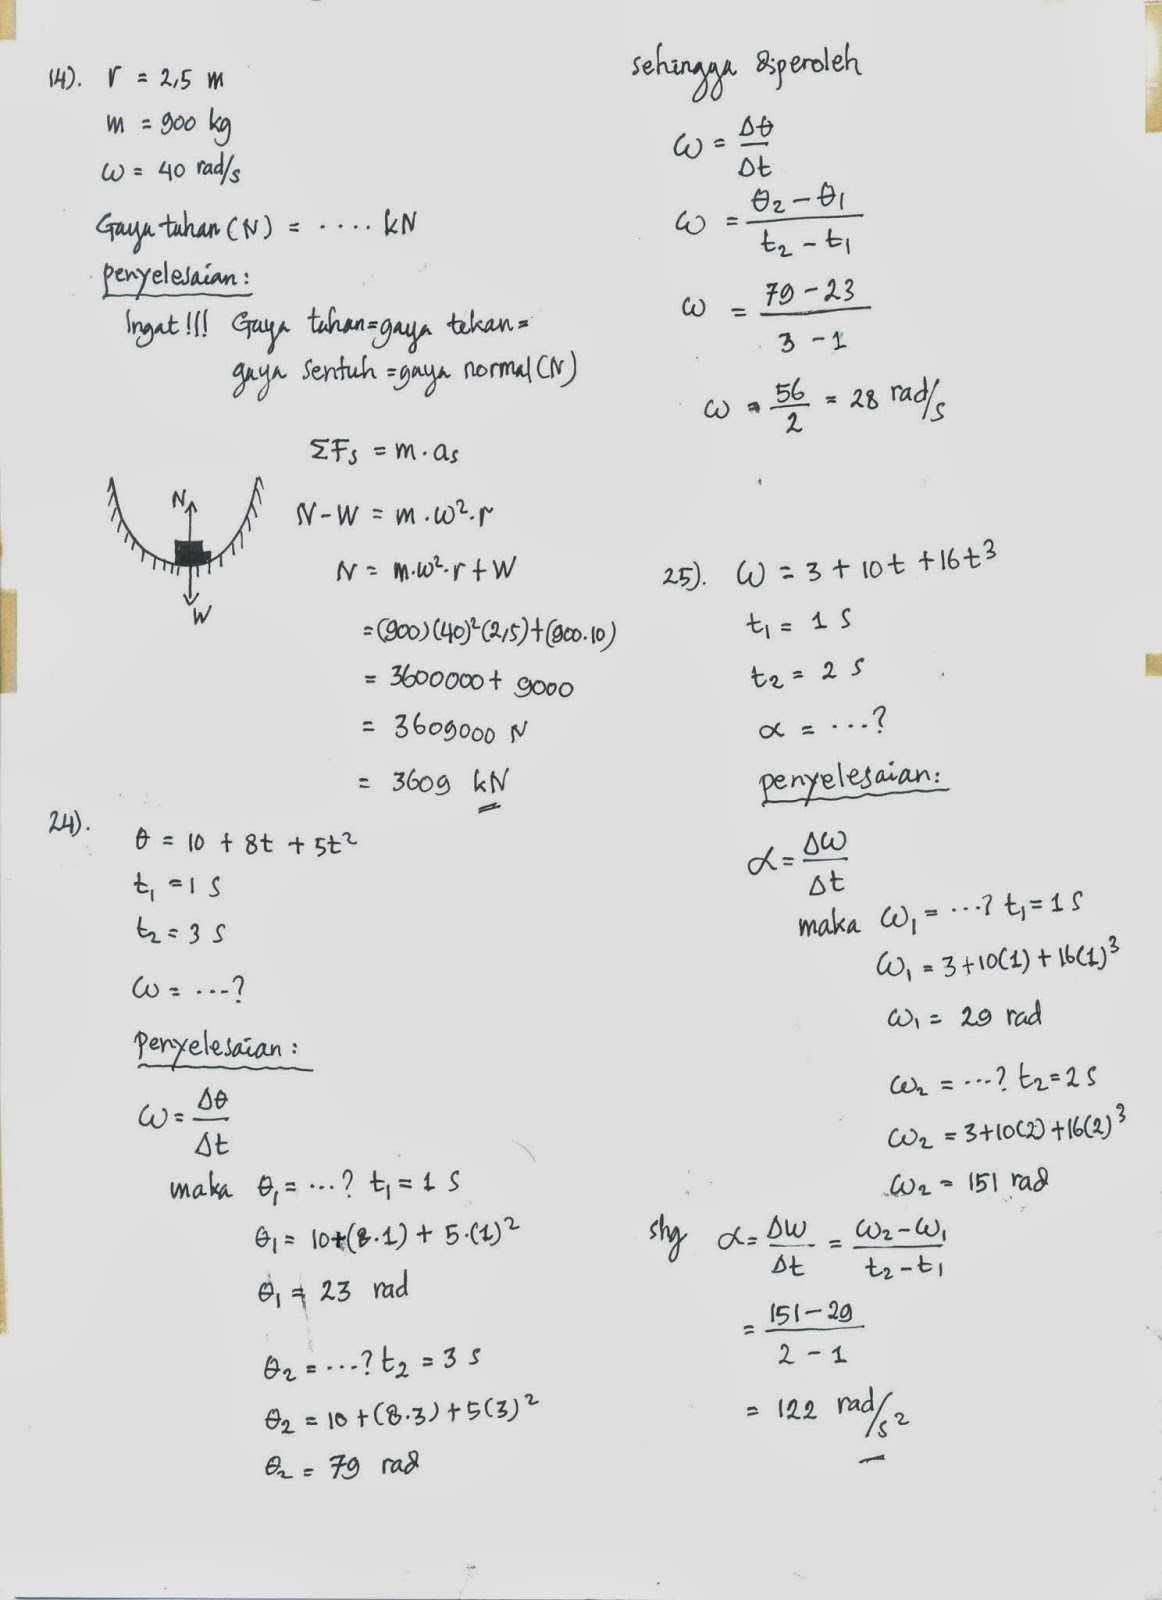 14). r = 2,5 m
m = 900 kg
ω = 40 rad/s
Gaya tahan (N) = .... kN
penyelesaian:
Ingat!!! Gaya tahan=gaya tekan=
gaya sentuh =gaya normal (N)
ΣFs = m.as
N-W = m.ω².r
N = m.ω².r + W
=(900)(40)²(2,5)+(900.10)
= 3600000+ 9000
= 3609000 N
= 3609 kN
N
W
24).
θ = 10 + 8t + 5t²
t₁ = 1 s
t₂ = 3 s
ω = ...?
Penyelesaian:
ω = Δθ/Δt
maka θ₁ = ...? t₁ = 1 s
θ₁ = 10+(8.1) + 5.(1)²
θ₁ = 23 rad
θ₂ = ...? t₂ = 3 s
θ₂ = 10 +(8.3)+5(3)²
θ₂ = 79 rad
sehingga diperoleh
ω = Δθ/Δt
ω = θ₂-θ₁/t₂-t₁
ω = 79-23/3-1
ω = 56/2 = 28 rad/s
25). ω = 3 + 10t +16t³
t₁ = 1 s
t₂ = 2 s
α = ...?
penyelesaian:
α = Δω/Δt
maka ω₁ = ...? t₁ = 1 s
ω₁ = 3+10(1)+ 16(1)³
ω₁ = 29 rad
ω₂ = ...? t₂=2 s
ω₂ = 3+10(2)+16(2)³
ω₂ = 151 rad
shg α = Δω/Δt = ω₂-ω₁/t₂-t₁
= 151-29/2-1
= 122 rad/s²